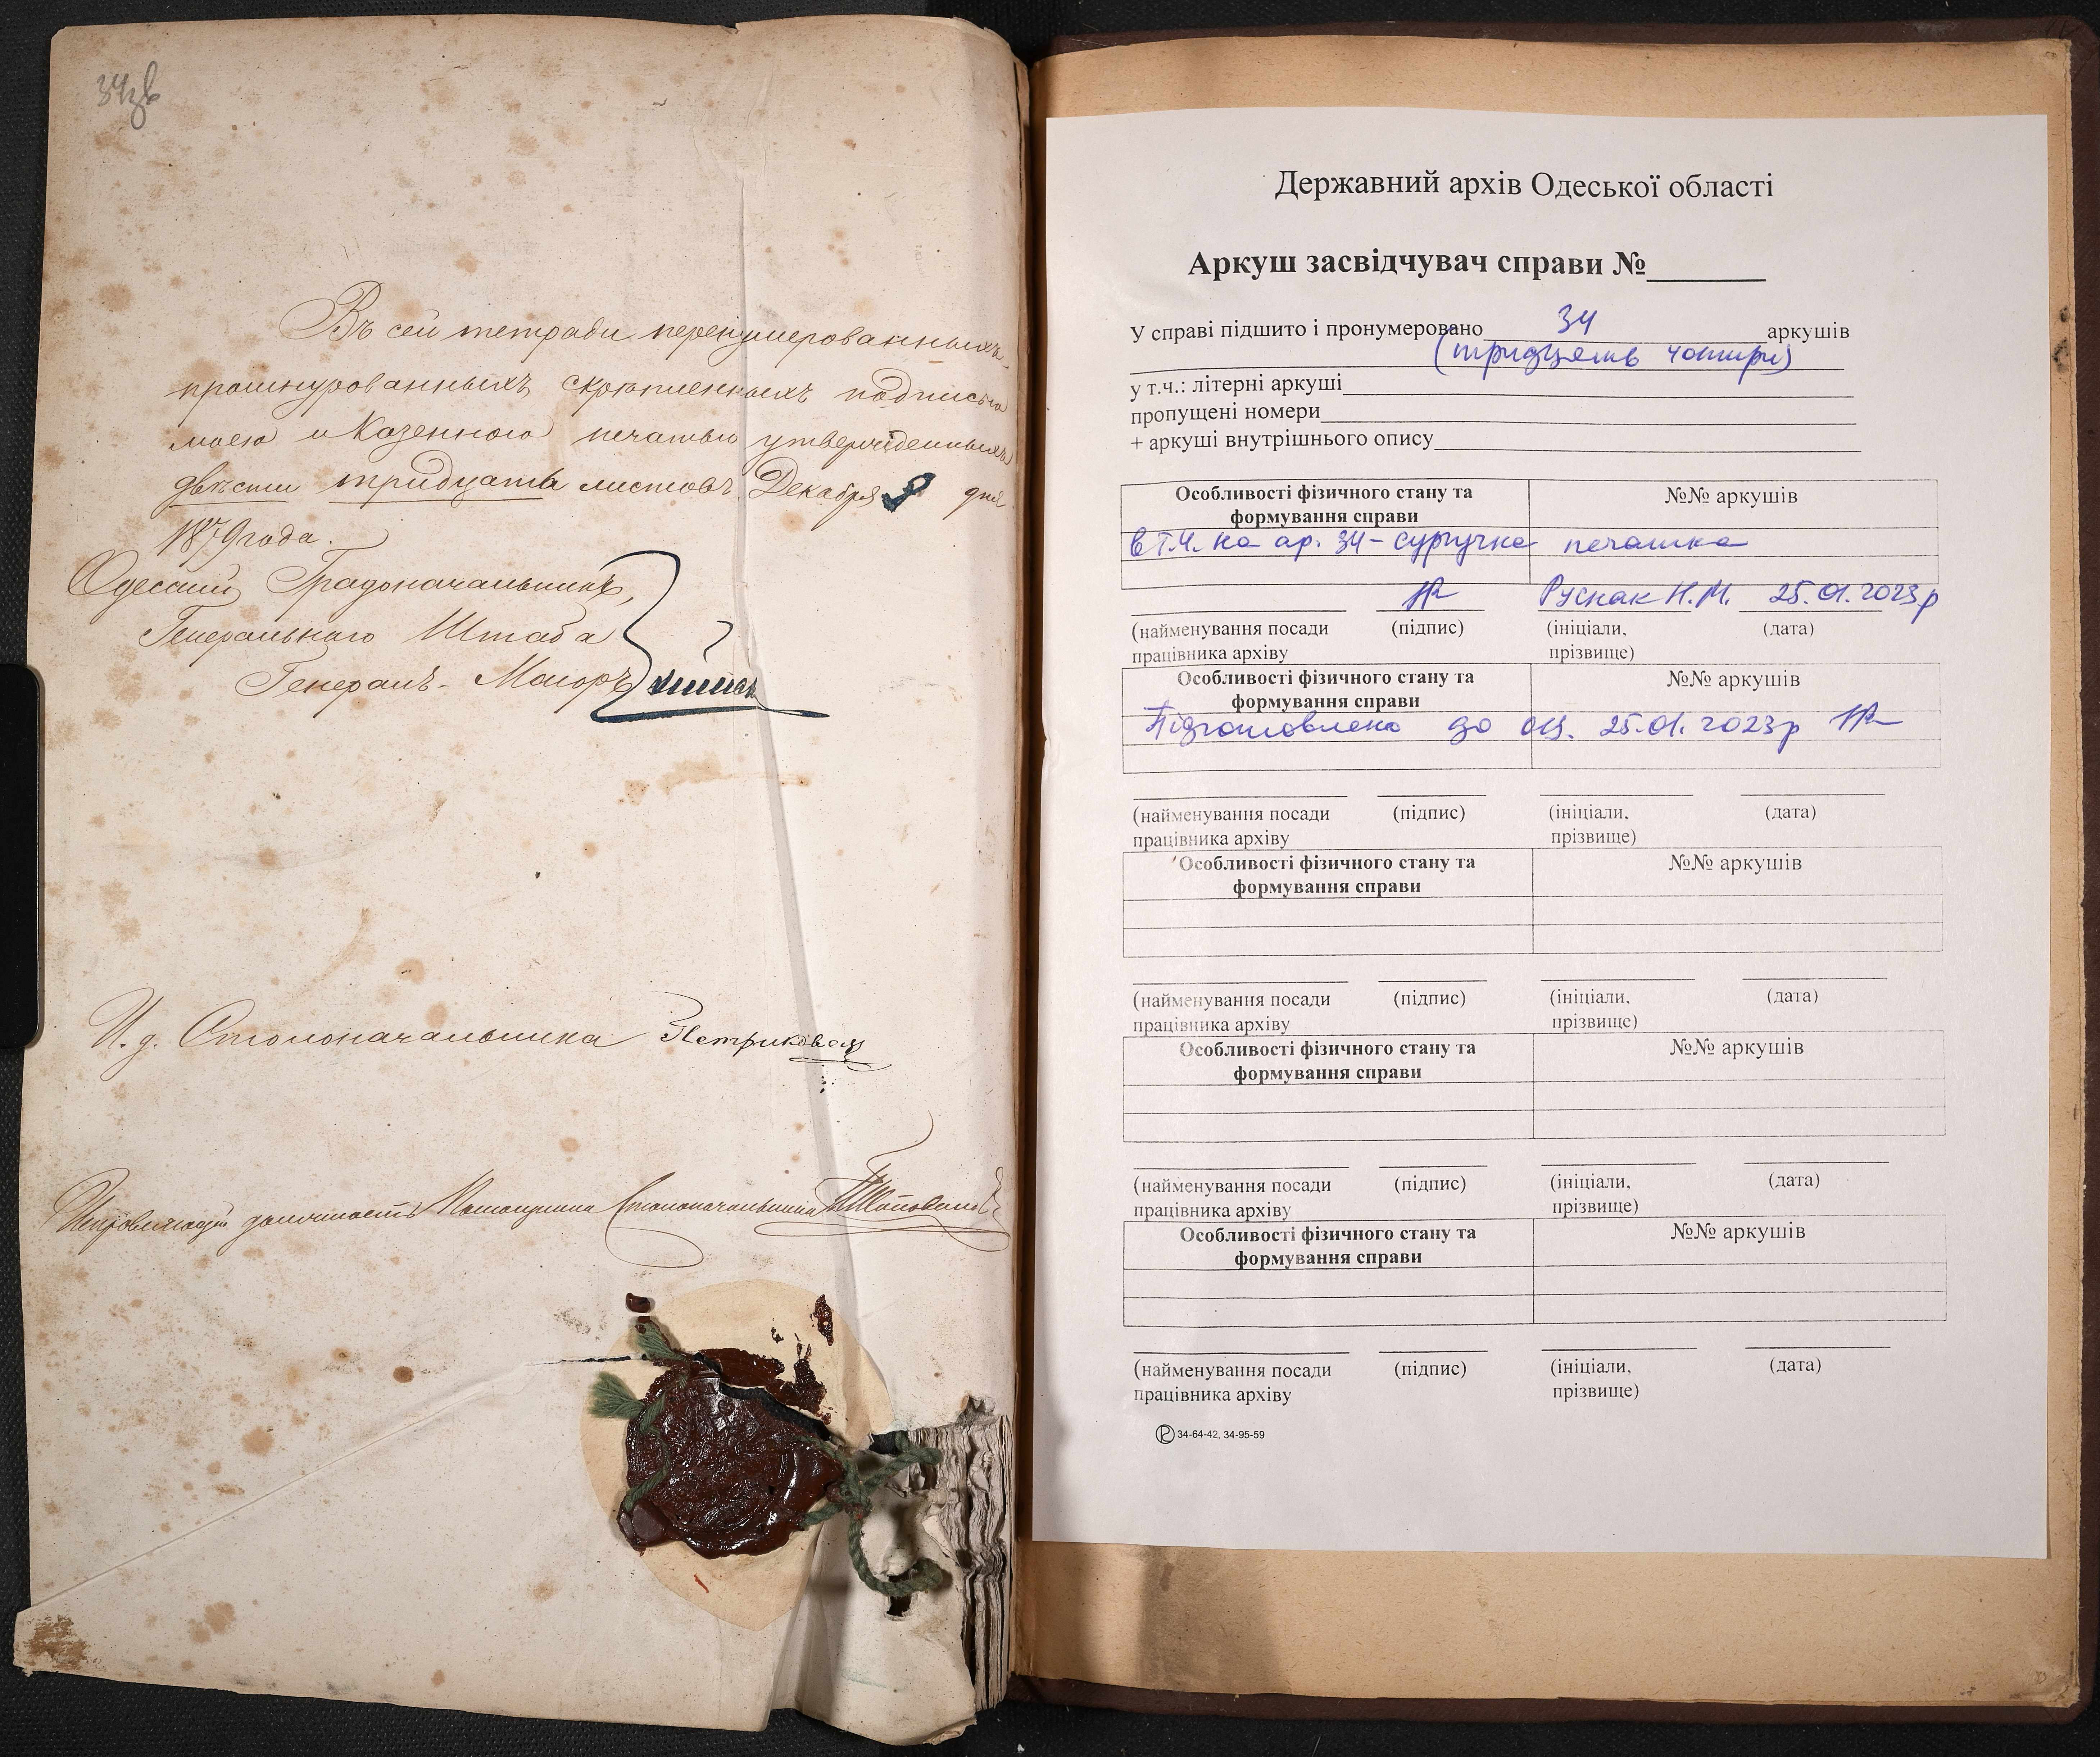 34зв
Въ сей тетради перенумерованныхъ
прошнурованныхъ скрѣпленныхъ подписью
моею и Казенною печатью утвержденныхъ
двѣсти тридцать листовъ. Декабря 9 дня
1879 года.
Одесскій Градоначальникъ,
Генеральнаго Штаба
Генералъ-Маіоръ
И. д. Столоначальника
должность Столоначальника
Державний архів Одеської області
Аркуш засвідчувач справи №
У справі підшито і пронумеровано 34 аркушів
(тридцять чотири)
у т.ч.: літерні аркуші
пропущені номери
+ аркуші внутрішнього опису
Особливості фізичного стану та №№ аркушів
формування справи
в т.ч. на ар. 34 - сургучна печатка
Руснак Н.М. 25.01.2023р
(найменування посади (підпис) (ініціали, (дата)
працівника архіву прізвище)
Особливості фізичного стану та №№ аркушів
формування справи
Підготовлено до оц. 25.01.2023р
(найменування посади (підпис) (ініціали, (дата)
працівника архіву прізвище)
Особливості фізичного стану та №№ аркушів
формування справи
(найменування посади (підпис) (ініціали, (дата)
працівника архіву прізвище)
Особливості фізичного стану та №№ аркушів
формування справи
(найменування посади (підпис) (ініціали, (дата)
працівника архіву прізвище)
Особливості фізичного стану та №№ аркушів
формування справи
(найменування посади (підпис) (ініціали, (дата)
працівника архіву прізвище)
34-64-42, 34-95-59